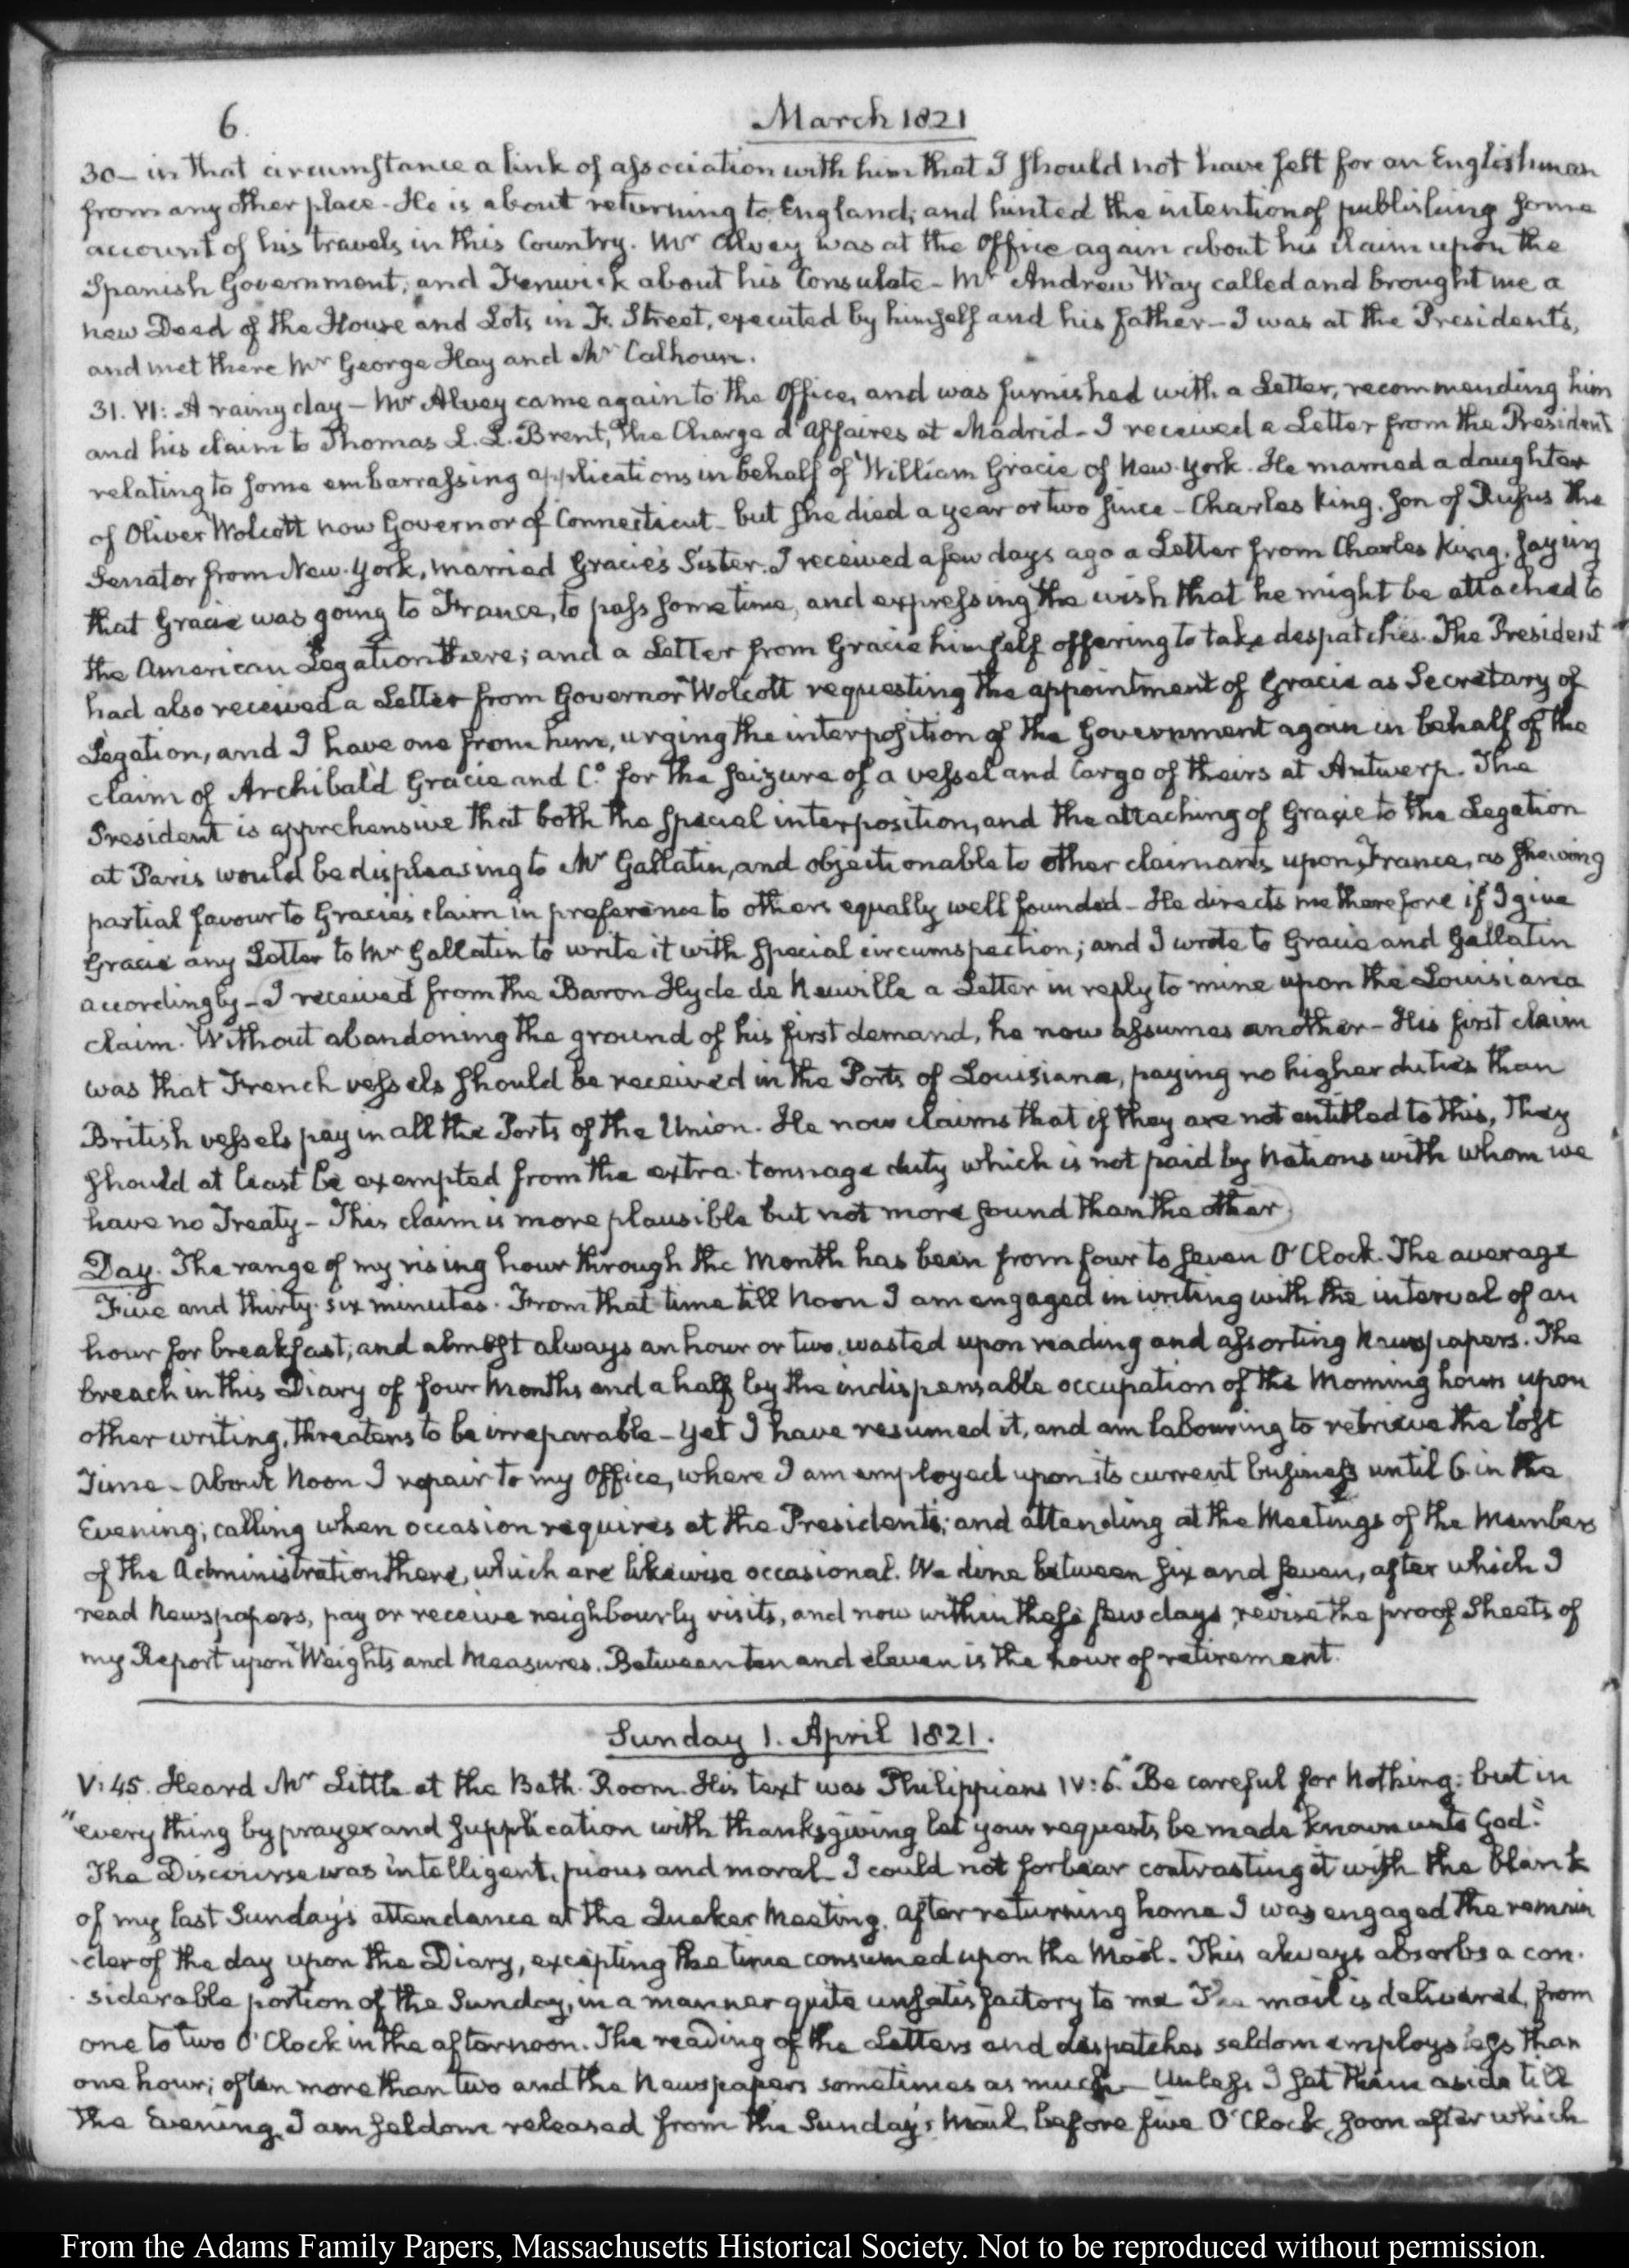 6.
March 1821
30 - in that circumstance a link of association with him that I should not have felt for an Englishman
from any other place - He is about returning to England; and hinted the intention of publishing some
account of his travels in this Country. Mr Alvey was at the Office again about his claim upon the
Spanish Government; and Fenwick about his Consulate - Mr Andrew Way called and brought me a
new Deed of the House and Lots in F. Street, executed by himself and his father - I was at the President's,
and met there Mr George Hay and Mr Calhoun.
31. VI: A rainy day - Mr Alvey came again to the Office, and was furnished with a Letter, recommending him
and his claim to Thomas L. L. Brent, the Charge d'Affaires at Madrid - I received a Letter from the President
relating to some embarrassing applications in behalf of William Gracie of New-York. He married a daughter
of Oliver Wolcott now Governor of Connecticut - but she died a year or two since - Charles King, son of Rufus the
Senator from New-York, married Gracie's Sister. I received a few days ago a Letter from Charles King, saying
that Gracie was going to France, to pass some time, and expressing the wish that he might be attached to
the American Legation there; and a Letter from Gracie himself offering to take despatches. The President
had also received a Letter from Governor Wolcott requesting the appointment of Gracie as Secretary of
Legation, and I have one from him, urging the interposition of the Government again in behalf of the
claim of Archibald Gracie and Co. for the seizure of a vessel and Cargo of theirs at Antwerp. The
President is apprehensive that both the special interposition, and the attaching of Gracie to the Legation
at Paris would be displeasing to Mr Gallatin, and objectionable to other claimants upon France, as shewing
partial favour to Gracie's claim in preference to others equally well founded - He directs me therefore if I give
Gracie any Letter to Mr Gallatin to write it with special circumspection; and I wrote to Gracie and Gallatin
accordingly - I received from the Baron Hyde de Neuville a Letter in reply to mine upon the Louisiana
claim. Without abandoning the ground of his first demand, he now assumes another - His first claim
was that French vessels should be received in the Ports of Louisiana, paying no higher duties than
British vessels pay in all the Ports of the Union. He now claims that if they are not entitled to this, They
should at least be exempted from the extra-tonnage duty which is not paid by Nations with whom we
have no Treaty - This claim is more plausible but not more sound than the other.
Day. The range of my rising hour through the Month has been from four to seven O'Clock. The average
Five and thirty-six minutes. From that time till Noon I am engaged in writing with the interval of an
hour for breakfast; and almost always an hour or two, wasted upon reading and assorting Newspapers. The
breach in this Diary of four Months and a half by the indispensable occupation of the Morning hours upon
other writing, threatens to be irreparable - Yet I have resumed it, and am labouring to retrieve the lost
Time - About Noon I repair to my Office, where I am employed upon its current business until 6 in the
Evening; calling when occasion requires at the President's; and attending at the Meetings of the Members
of the Administration there, which are likewise occasional. We dine between six and seven, after which I
read Newspapers, pay or receive neighbourly visits, and now within these few days, revise the proof Sheets of
my Report upon Weights and Measures. Between ten and eleven is the hour of retirement.
Sunday 1. April 1821.
V:45. Heard Mr Little at the Bath-Room. His text was Philippians IV:6. "Be careful for Nothing: but in
"every thing by prayer and supplication with thanksgiving let your requests be made known unto God."
The Discourse was intelligent, pious and moral - I could not forbear contrasting it with the blank
of my last Sunday's attendance at the Quaker Meeting. After returning home I was engaged the remain
-der of the day upon the Diary, excepting the time consumed upon the Mail. This always absorbs a con-
-siderable portion of the Sunday, in a manner quite unsatisfactory to me The mail is delivered, from
one to two O'Clock in the afternoon. The reading of the Letters and despatches seldom employs less than
one hour; often more than two and the Newspapers sometimes as much - Unless I set them aside till
the Evening, I am seldom released from the Sunday's Mail, before five O'Clock, soon after which
From the Adams Family Papers, Massachusetts Historical Society. Not to be reproduced without permission.